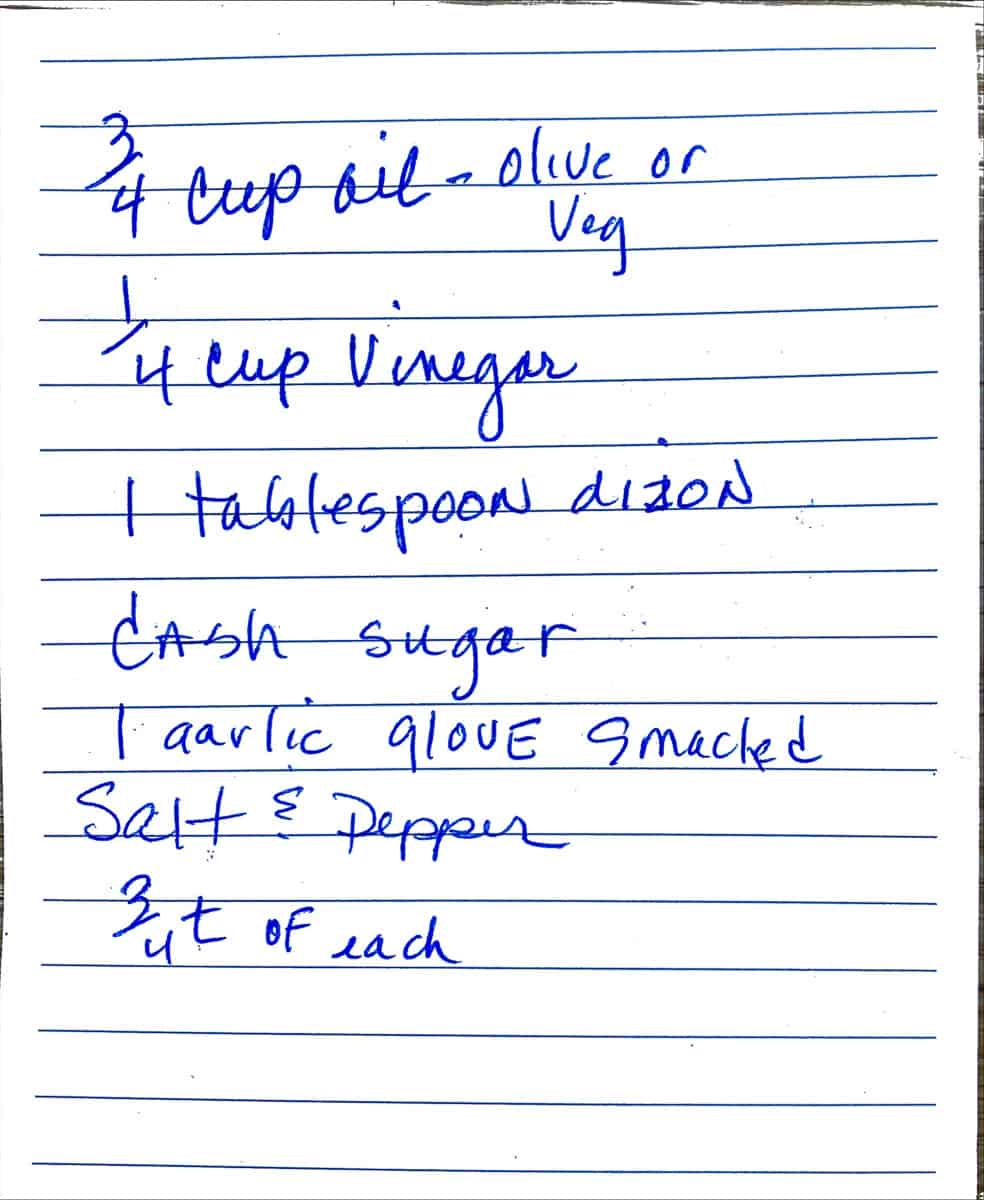 3/4 cup oil - olive or
Veg
1/4 cup Vinegar
1 tablespoon dizon
dash sugar
1 aarlic glove smacked
Salt & Pepper
3/4 t of each